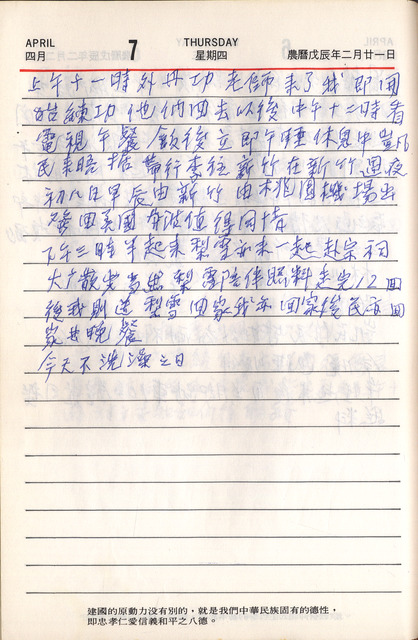 APRIL 7 THURSDAY 農曆戊辰年二月廿一日
四月 星期四
上午十一時外丹功老師來了我即開
始練功他們回去以後中午十二時看
電視午餐飯後立即午睡休息中豈凡
民來晤據 帶行李往新竹在新竹過夜
初八日早辰由新竹由桃園機場出
發回美國奔波值得同情
下午三時半起來梨雪亦來一起赴宗祠
大广散步 梨雪陪伴照料走完12回
後我則送梨雪回家我亦回家後民 回
家共晚餐
今天不洗澡之日
建國的原動力没有別的，就是我們中華民族固有的德性，
即忠孝仁愛信義和平之八德。